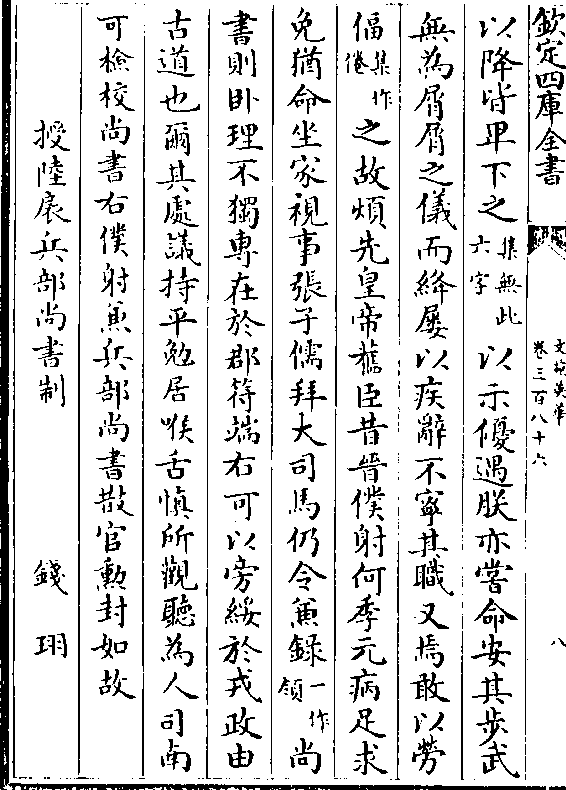 欽定四庫全書
文苑英華
卷三百八十六
八
以降皆卑下之集無此六字以示優遇朕亦嘗命安其步武
無為屑屑之儀而絳屢以疾辭不寧其職又焉敢以勞
偪集作倦之故煩先皇帝舊臣昔晉僕射何季元病足求
免猶命坐家視事張子儒拜大司馬仍令兼錄一作領尚
書則卧理不獨專在於郡符端右可以旁綏於戎政由
古道也爾其處議持平勉居喉舌慎所觀聽為人司南
可檢校尚書右僕射兼兵部尚書散官勲封如故
授陸扆兵部尚書制
錢珝